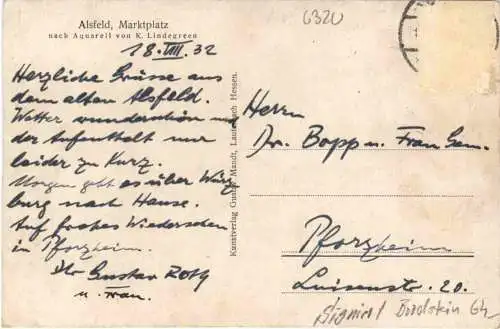 Alsfeld, Marktplatz
nach Aquarell von K. Lindegreen
18.VIII.32
Herzliche Grüsse aus
dem alten Alsfeld.
Wetter wunderschön und
der Aufenthalt nur
leider zu kurz.
Morgen geht es über Würz
burg nach Hause.
Auf frohes Wiedersehen
in Pforzheim.
Ihr Gustav Roth
u. Frau.
Kunstverlag Gustav Mandt, Lauterbach Hessen.
6320
Herrn
Dr. Bopp u. Frau Gem.
Pforzheim
Luisenstr. 20.
Signiert